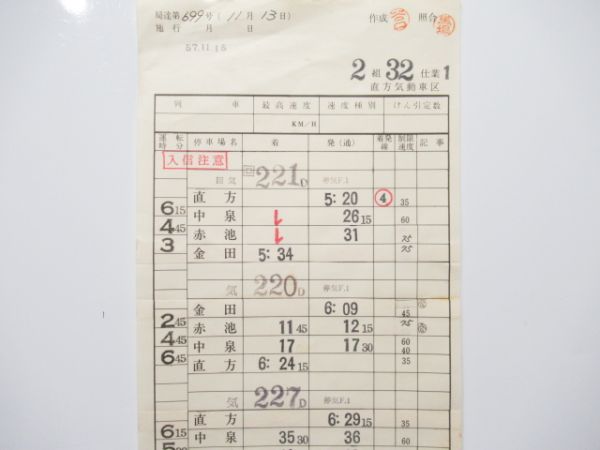 局達第699号(11月13日) 作成 照合
施行 月 日
57.11.15
2組32仕業1
直方気動車区
列 車 最高速度 速度種別 けん引定数
KM/H
運転時分 停車場名 着 発(通) 着発線 制限速度 記事
入信注意
221D 停気F.1
直方 5:20 ④ 35
615 中泉 2615 60
445 赤池 31 75
3 金田 5:34 75
気 220D 停気F.1
金田 6:09 45
245 赤池 1145 1215 75
445 中泉 17 1730 60 40
645 直方 6:2415 35
気 227D 停気F.1
直方 6:2915 35
615 中泉 3530 36 60